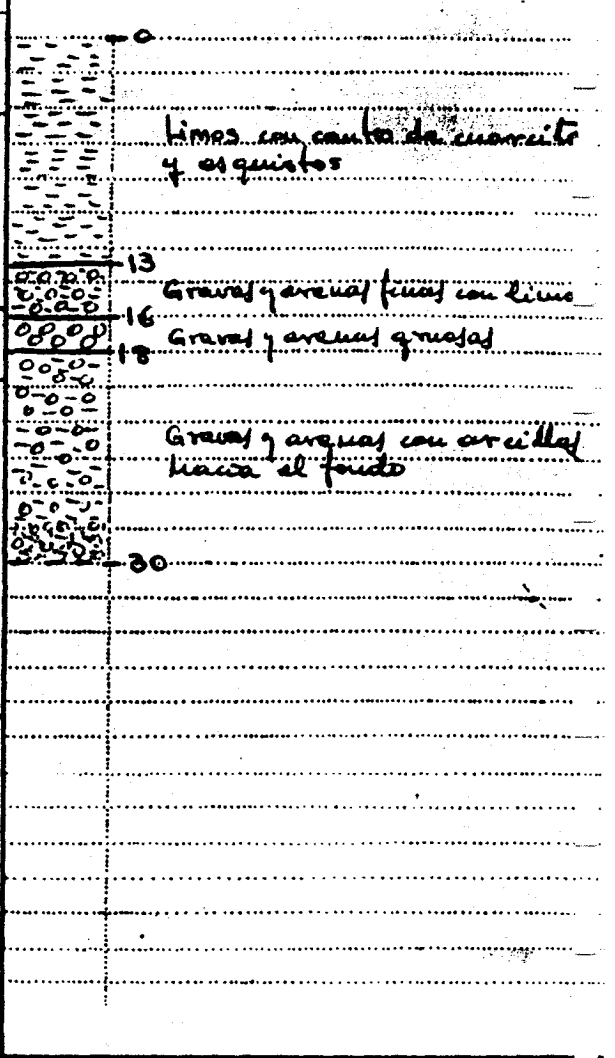 0
Limos con cantos de cuarcita
y esquistos
13
Gravas y arenas finas con limo
16
Gravas y arenas gruesas
18
Gravas y arenas con arcillas
hacia el fondo
30